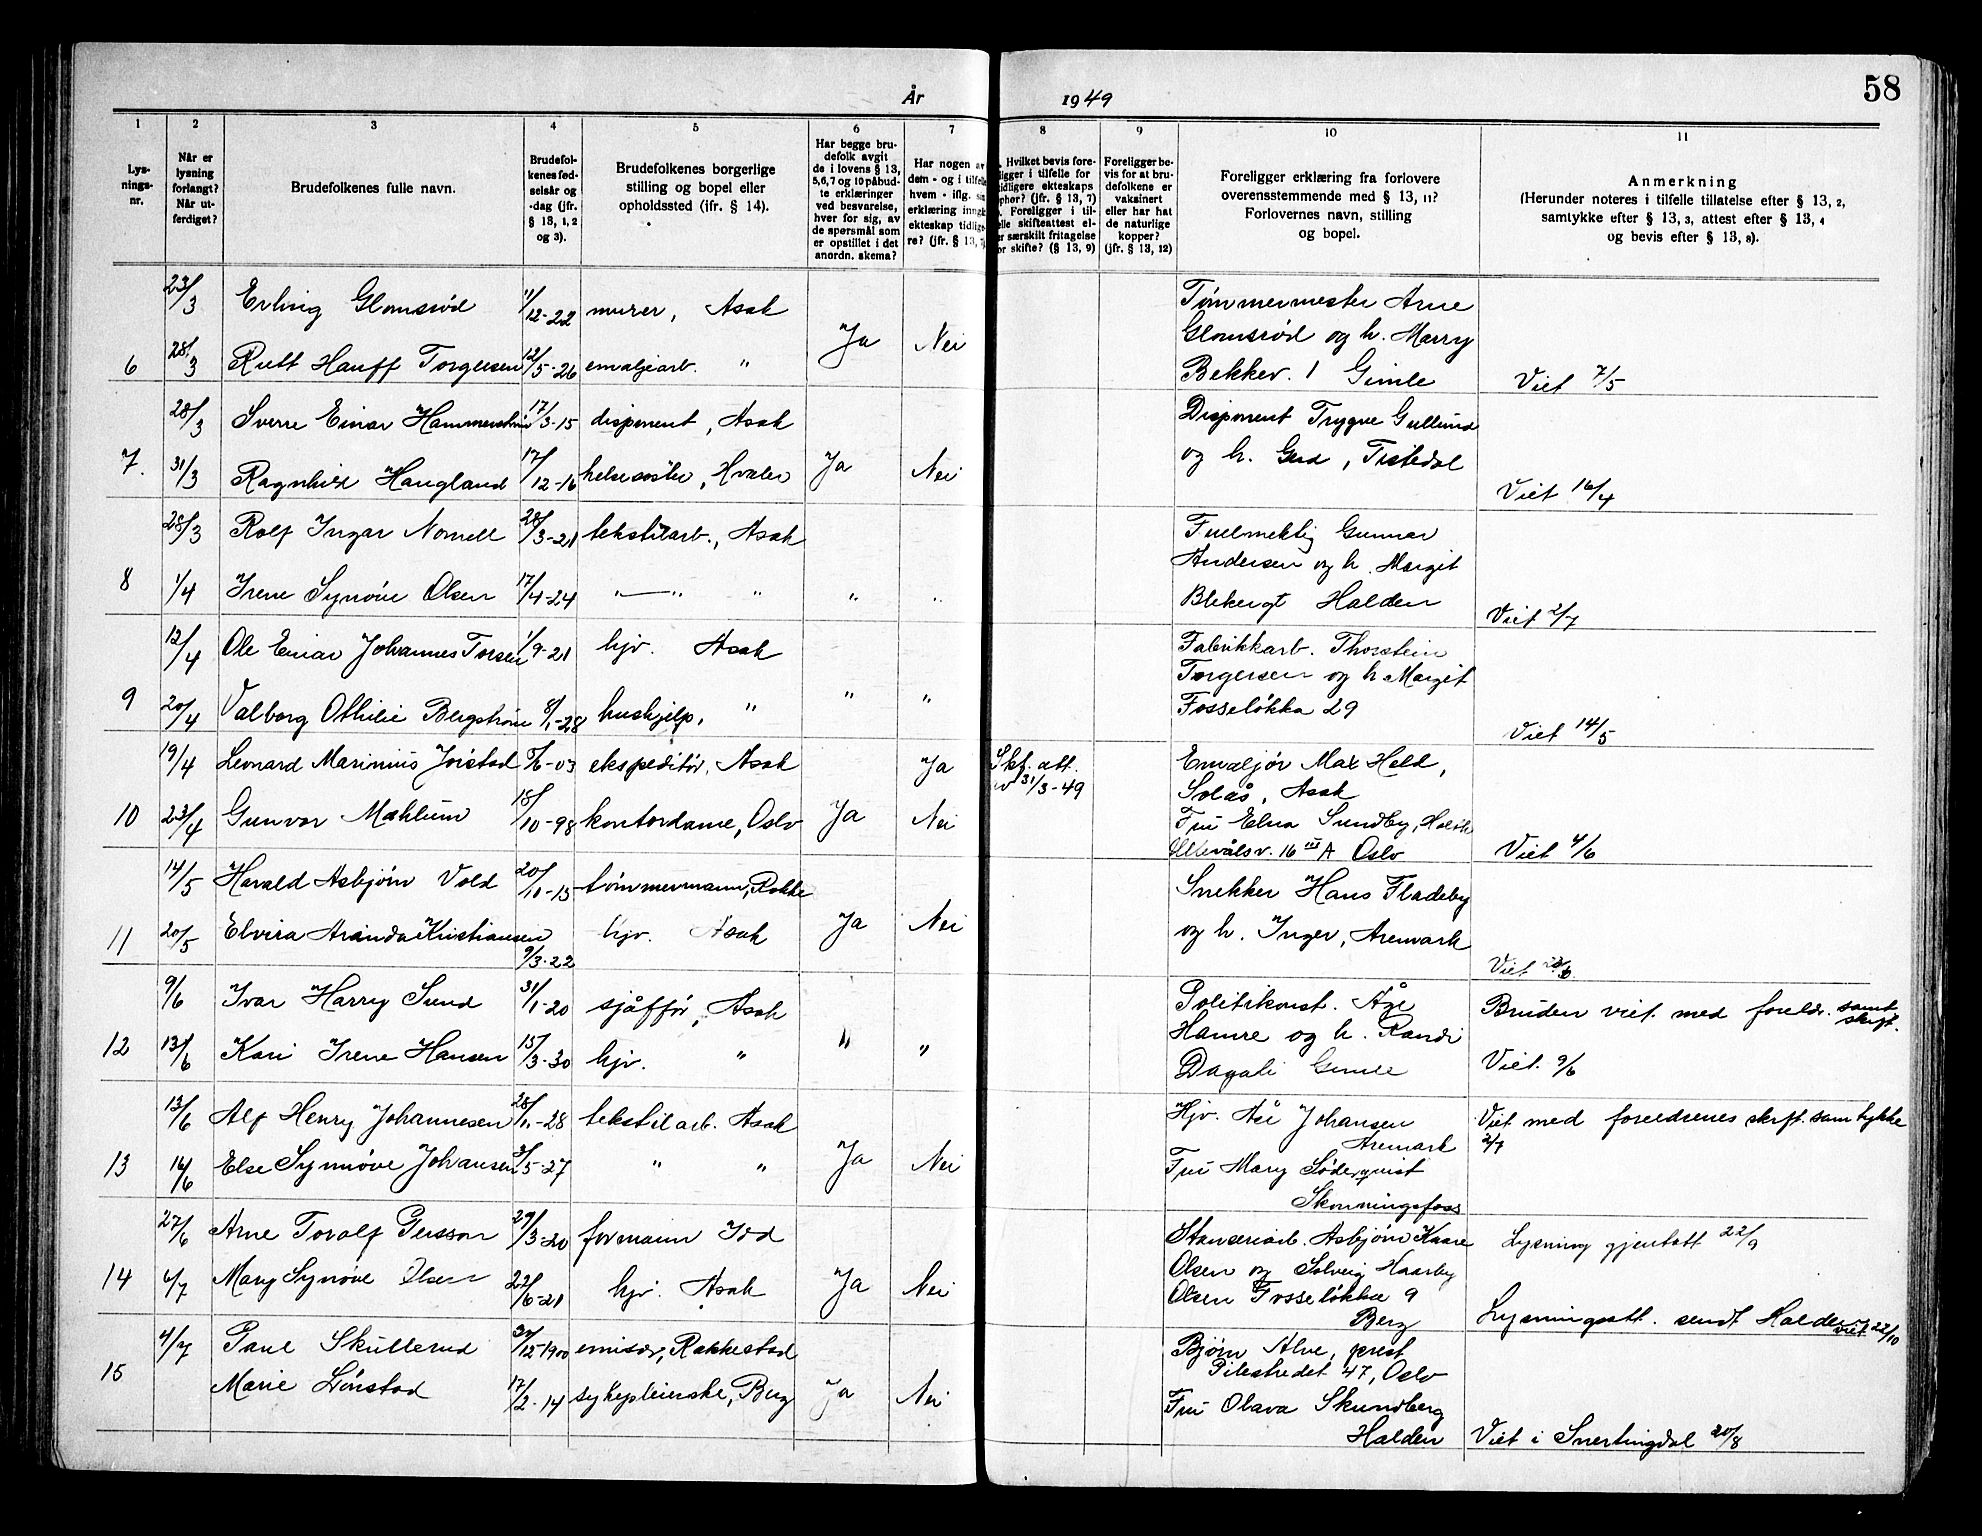 58
År 1949
1 2 3 4 5 6 7 8 9 10 11
Lys-
nings-
nr.
Når er
lysning
forlangt?
Når ut-
ferdiget?
Brudefolkenes fulle navn.
Brudefol-
kenes fød-
selsår og
-dag (jfr.
§ 13, 1, 2
og 3).
Brudefolkenes borgerlige
stilling og bopel eller
opholdssted (ifr. § 14).
Har begge bru-
defolk avgit
de i lovens § 13,
5,6,7 og 10 påbud-
te erklæringer
ved besvarelse,
hver for sig, av
de spørsmål som
er opstillet i det
anordn. skema?
Har nogen av
dem - og i tilfelle
hvem - iflg. sin
erklæring inngå
ekteskap tidlig
re? (jfr. § 13,
Hvilket bevis fore-
ligger i tilfelle for
tidligere ekteskaps
opher? (jfr. § 13, 7)
Foreligger i til-
elle skifteattest el-
er særskilt fritagelse
or skifte? (§ 13, 9)
Foreligger be-
vis for at bru-
defolkene er
vaksinert
eller har hat
de naturlige
kopper?
(jfr. § 13, 12)
Foreligger erklæring fra forlovere
overensstemmende med § 13, 11?
Forlovernes navn, stilling
og bopel.
Anmerkning
(Herunder noteres i tilfelle tillatelse efter § 13, 2,
samtykke efter § 13, 3, attest efter § 13, 4
og bevis efter § 13, 8).
23/3 Erling Glomsrød 1/12-22 murer, Asak Tømmermester Arne
Ja Nei Glomsrød og h. Marry
6 28/3 Rutt Hauff Torgersen 12/5-26 emaljearb. " Bekkev. 1 Gimle Viet 7/5
28/3 Sverre Einar Hammerstrøm 17/3-15 disponent, Asak Disponent Trygve Gullund
7. 31/3 Ragnhild Haugland 17/12-16 helsesøster, Hvaler Ja Nei og h. Gerd, Tistedal
Viet 16/4
28/3 Rolf Ingar Nomell 28/3-21 tekstilarb., Asak Fullmektig Gunnar
8 1/4 Irene Synøve Olsen 17/4-24 " — " " " " Andersen og h. Margit
Halden Viet 2/7
12/4 Ole Einar Johannes Torsen 1/9-21 hjv. Asak Fabrikkarb. Thorstein
Torgersen og h Margit
9 20/4 Valborg Othilie Bergstrøm 8/1-28 hushjelp, " " " Fosseløkka 29
Viet 14/5
19/4 Leonard Marinius Jørstad 5/6-03 ekspeditør, Asak Ja Skf. att. Emaljør Max Held,
31/3-49 Solås, Asak
10 23/4 Gunvor Mæhlum 18/10-98 kontordame, Oslo Ja Nei Fru Elna Sundby,
Ullevålsv. 16 III A Oslo Viet 4/6
14/5 Harald Asbjørn Vold 20/1-15 tømmermann, Rokke Snekker Hans Fladeby
11 20/5 Elvira Aranda Kristiansen hjv. Asak Ja Nei og h. Inger, Aremark
9/3-22 Viet
9/6 Ivar Harry Sund 31/1-20 sjåffør, Asak Politikonst. Åge Bruden viet med foreldr. samt. skrft.
12 13/6 Kari Irene Hansen 15/3-30 hjv. " " " Hamre og h. Randi
Dagali Gimle Viet. 9/6
13/6 Alf Henry Johannesen 28/1-28 tekstilarb. Asak Hjv. Åse Johansen Viet med foreldrenes skrft. samtykke
Aremark 2/7
13 16/6 Else Synnøve Johansen 3/5-27 " " Ja Nei Fru Mary Søderqvist
Skonningsfoss
27/6 Arne Toralf Persson 29/3-20 formann Idd Stanseriarb. Asbjørn Kaare Lysning gjentatt 22/9
14 6/7 Mary Synøve Olsen 22/6-21 hjv. Asak Ja Nei Olsen og Solveig Haarby
Olsen Fosseløkka 9
Berg Lysningsatt. sendt Halden viet 22/10
4/7 Paul Skullerud 30/12-1900 emisær, Rakkestad Bjørn Alve, prest
Pilestredet 47, Oslo
15 Marie Lønstad 17/2-14 sykepleierske, Berg Ja Nei Fru Olava Skundberg
Halden Viet i Snertingdal 20/8